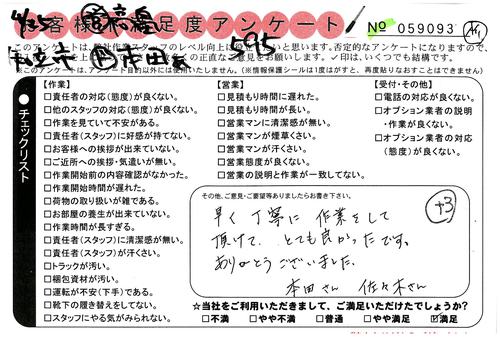 お客様満足度アンケート
№ 059093
4/25
595
このアンケートは、
否定的なアンケートになりますので、
くの正直なご意見をお願いします。✓印は、いくつでも結構です。
※このアンケートは、アンケート目的以外には使用いたしません。(※情報保護シールは1度はがすと、再度貼りなおすことはできません)
チェックリスト
【作業】
□責任者の対応(態度)が良くない。
□他のスタッフの対応(態度)が良くない。
□作業を見ていて不安がある。
□責任者(スタッフ)に好感が持てない。
□お客様への挨拶が出来ていない。
□ご近所への挨拶・気遣いが無い。
□作業開始前の内容確認がなかった。
□作業開始時間が遅れた。
□荷物の取り扱いが雑である。
□お部屋の養生が出来ていない。
□作業時間が長すぎる。
□責任者(スタッフ)に清潔感が無い。
□責任者(スタッフ)が汗くさい。
□トラックが汚い。
□梱包資材が汚い。
□運転が不安(下手)である。
□靴下の履き替えをしてない。
□スタッフにやる気がみられない。
【営業】
□見積もり時間に遅れた。
□見積もり時間が長い。
□営業マンに清潔感が無い。
□営業マンが煙草くさい。
□営業マンが汗くさい。
□営業態度が良くない。
□営業の説明と作業が一致してない。
【受付・その他】
□電話の対応が良くない。
□オプション業者の説明・作業が良くない。
□オプション業者の対応(態度)が良くない。
その他、ご意見・ご要望等ありましたらお書き下さい。
+3
早く丁寧に作業をして
頂けて、とても良かったです。
ありがとうございました。
本田さん 佐々木さん
☆当社をご利用いただきまして、ご満足いただけたでしょうか?
□不満 □やや不満 □普通 □やや満足 ☑満足